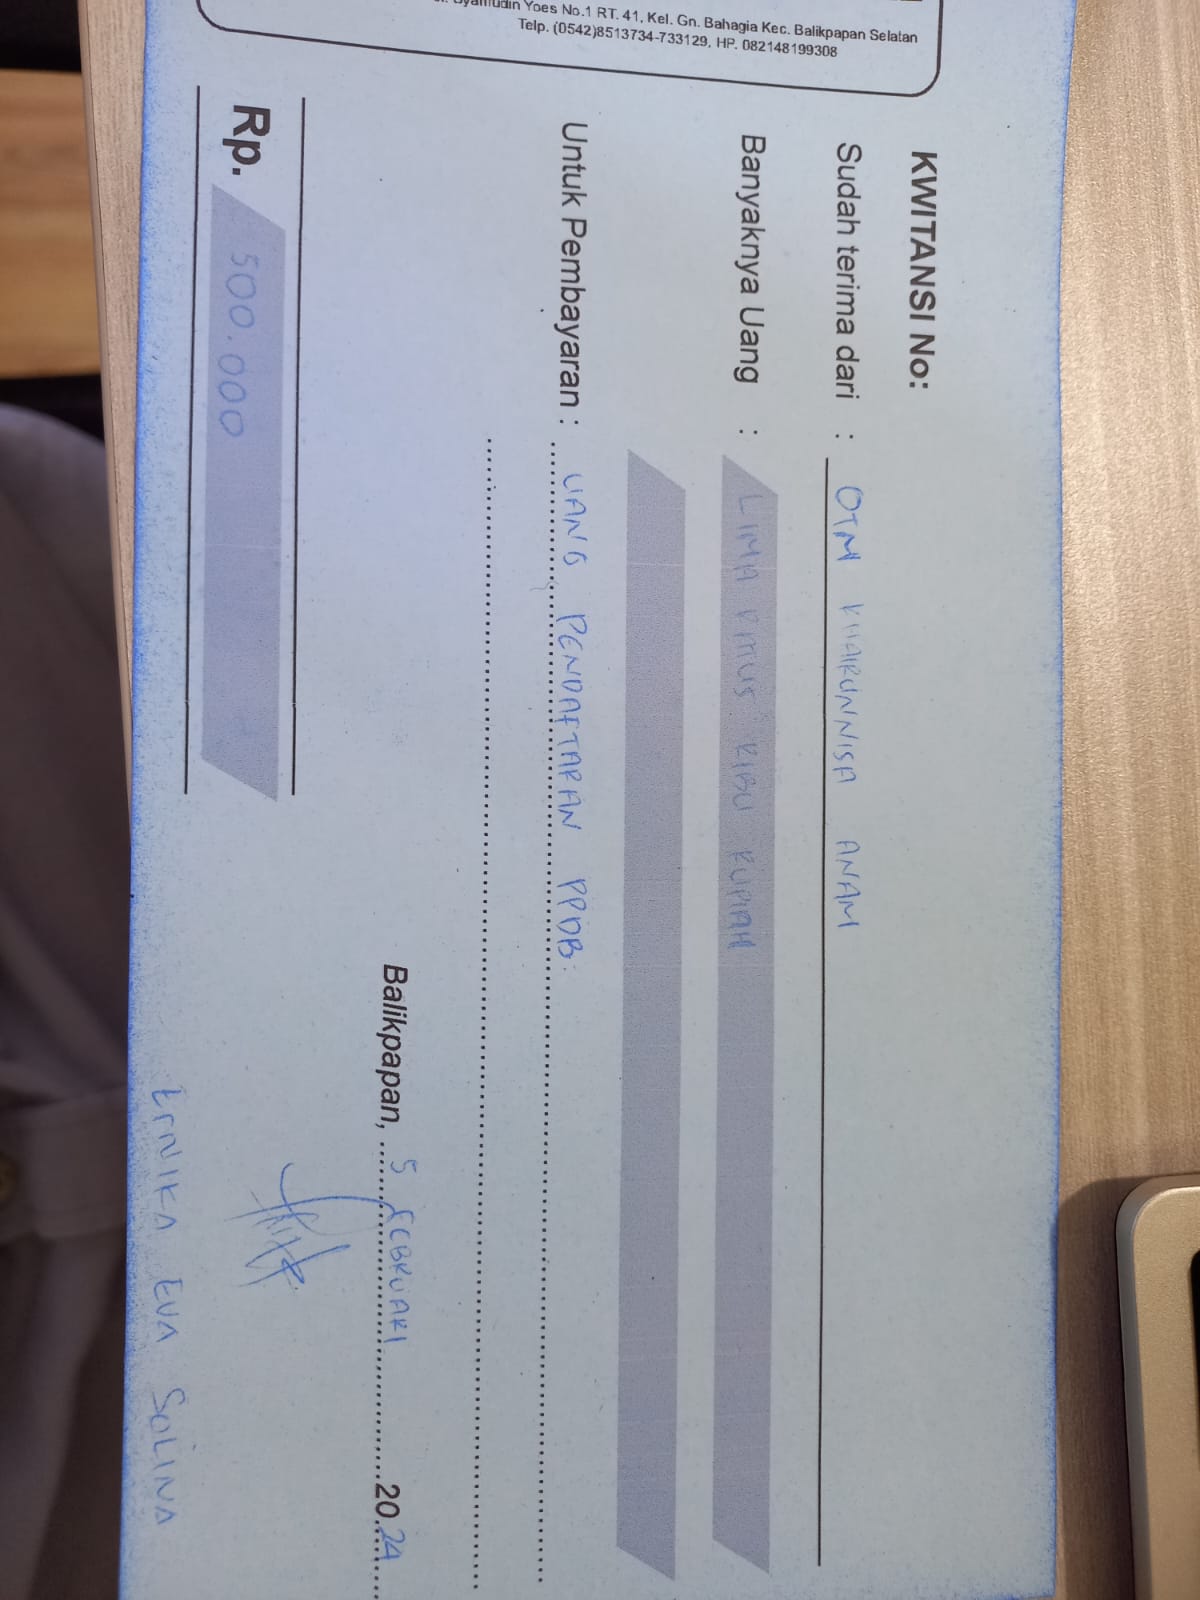 Yoes No.1 RT. 41, Kel. Gn. Bahagia Kec. Balikpapan Selatan
Telp. (0542)8513734-733129, HP. 082148199308
KWITANSI No:
Sudah terima dari : OTM KHAIRUNNISA ANAM
Banyaknya Uang : LIMA RATUS RIBU RUPIAH
Untuk Pembayaran : UANG PENDAFTARAN PPDB.
Balikpapan, 5 FEBRUARI 2024
Rp. 500.000
ERNIKA EVA SOLINA